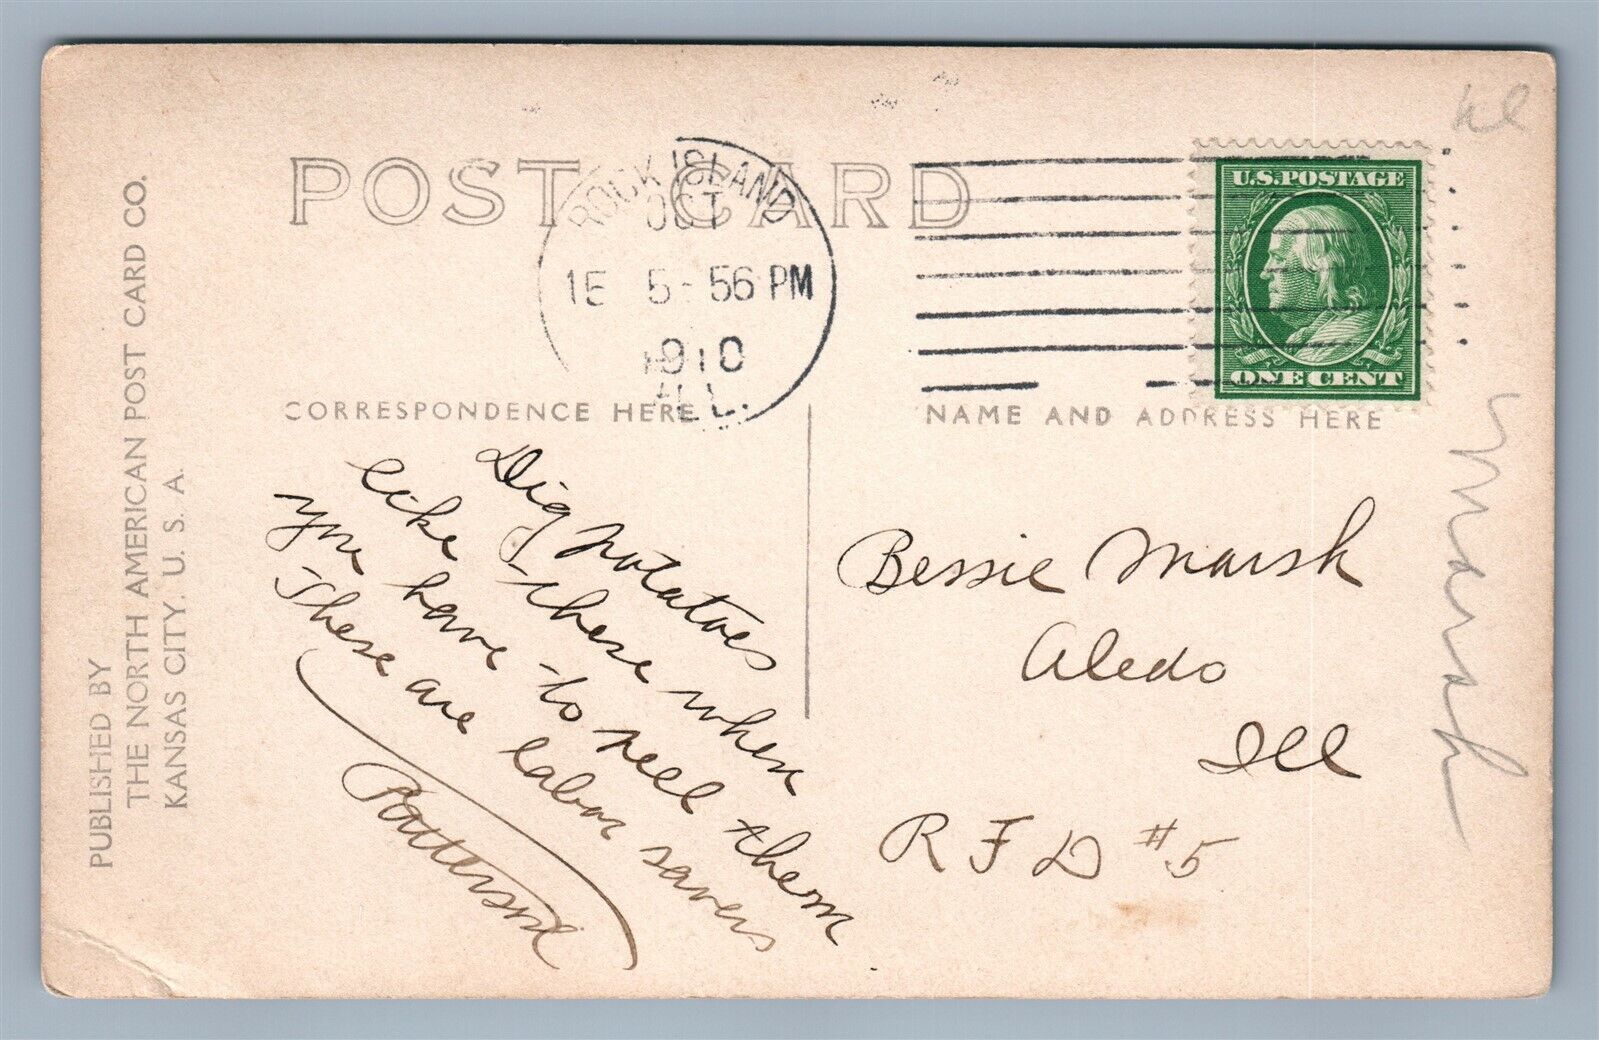 POST CARD
ROCK ISLAND
OCT
15 5-56 PM
1910
ILL.
U.S.POSTAGE
ONE CENT
CORRESPONDENCE HERE
NAME AND ADDRESS HERE
Dig potatoes
like these when
you have to sell them
These are labor savers
Patterson
Bessie Marsh
Aledo
Ill
R F D #5
Marsh
PUBLISHED BY
THE NORTH AMERICAN POST CARD CO.
KANSAS CITY. U. S. A.